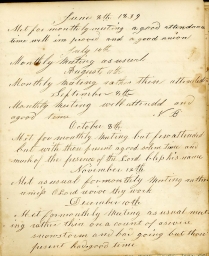 June 8th 1839
Met for monthly meeting a good attendance
time well improved and a good union
July 13th
Monthly Meeting as usual
August
Monthly Meeting rather thin attended
September 8th
Monthly Meeting well attended and
good time N B
October 8th
Met for monthly Meeting but few attended
but with those present agreed when time was
much of the presence of the Lord bless his name
November 12th
Met as usual for monthly Meeting rather
O Lord revive thy work
December 10th
Met for monthly Meeting as usual meet
ing rather thin on account of a severe
snowstorm and bad going but those
present had good time